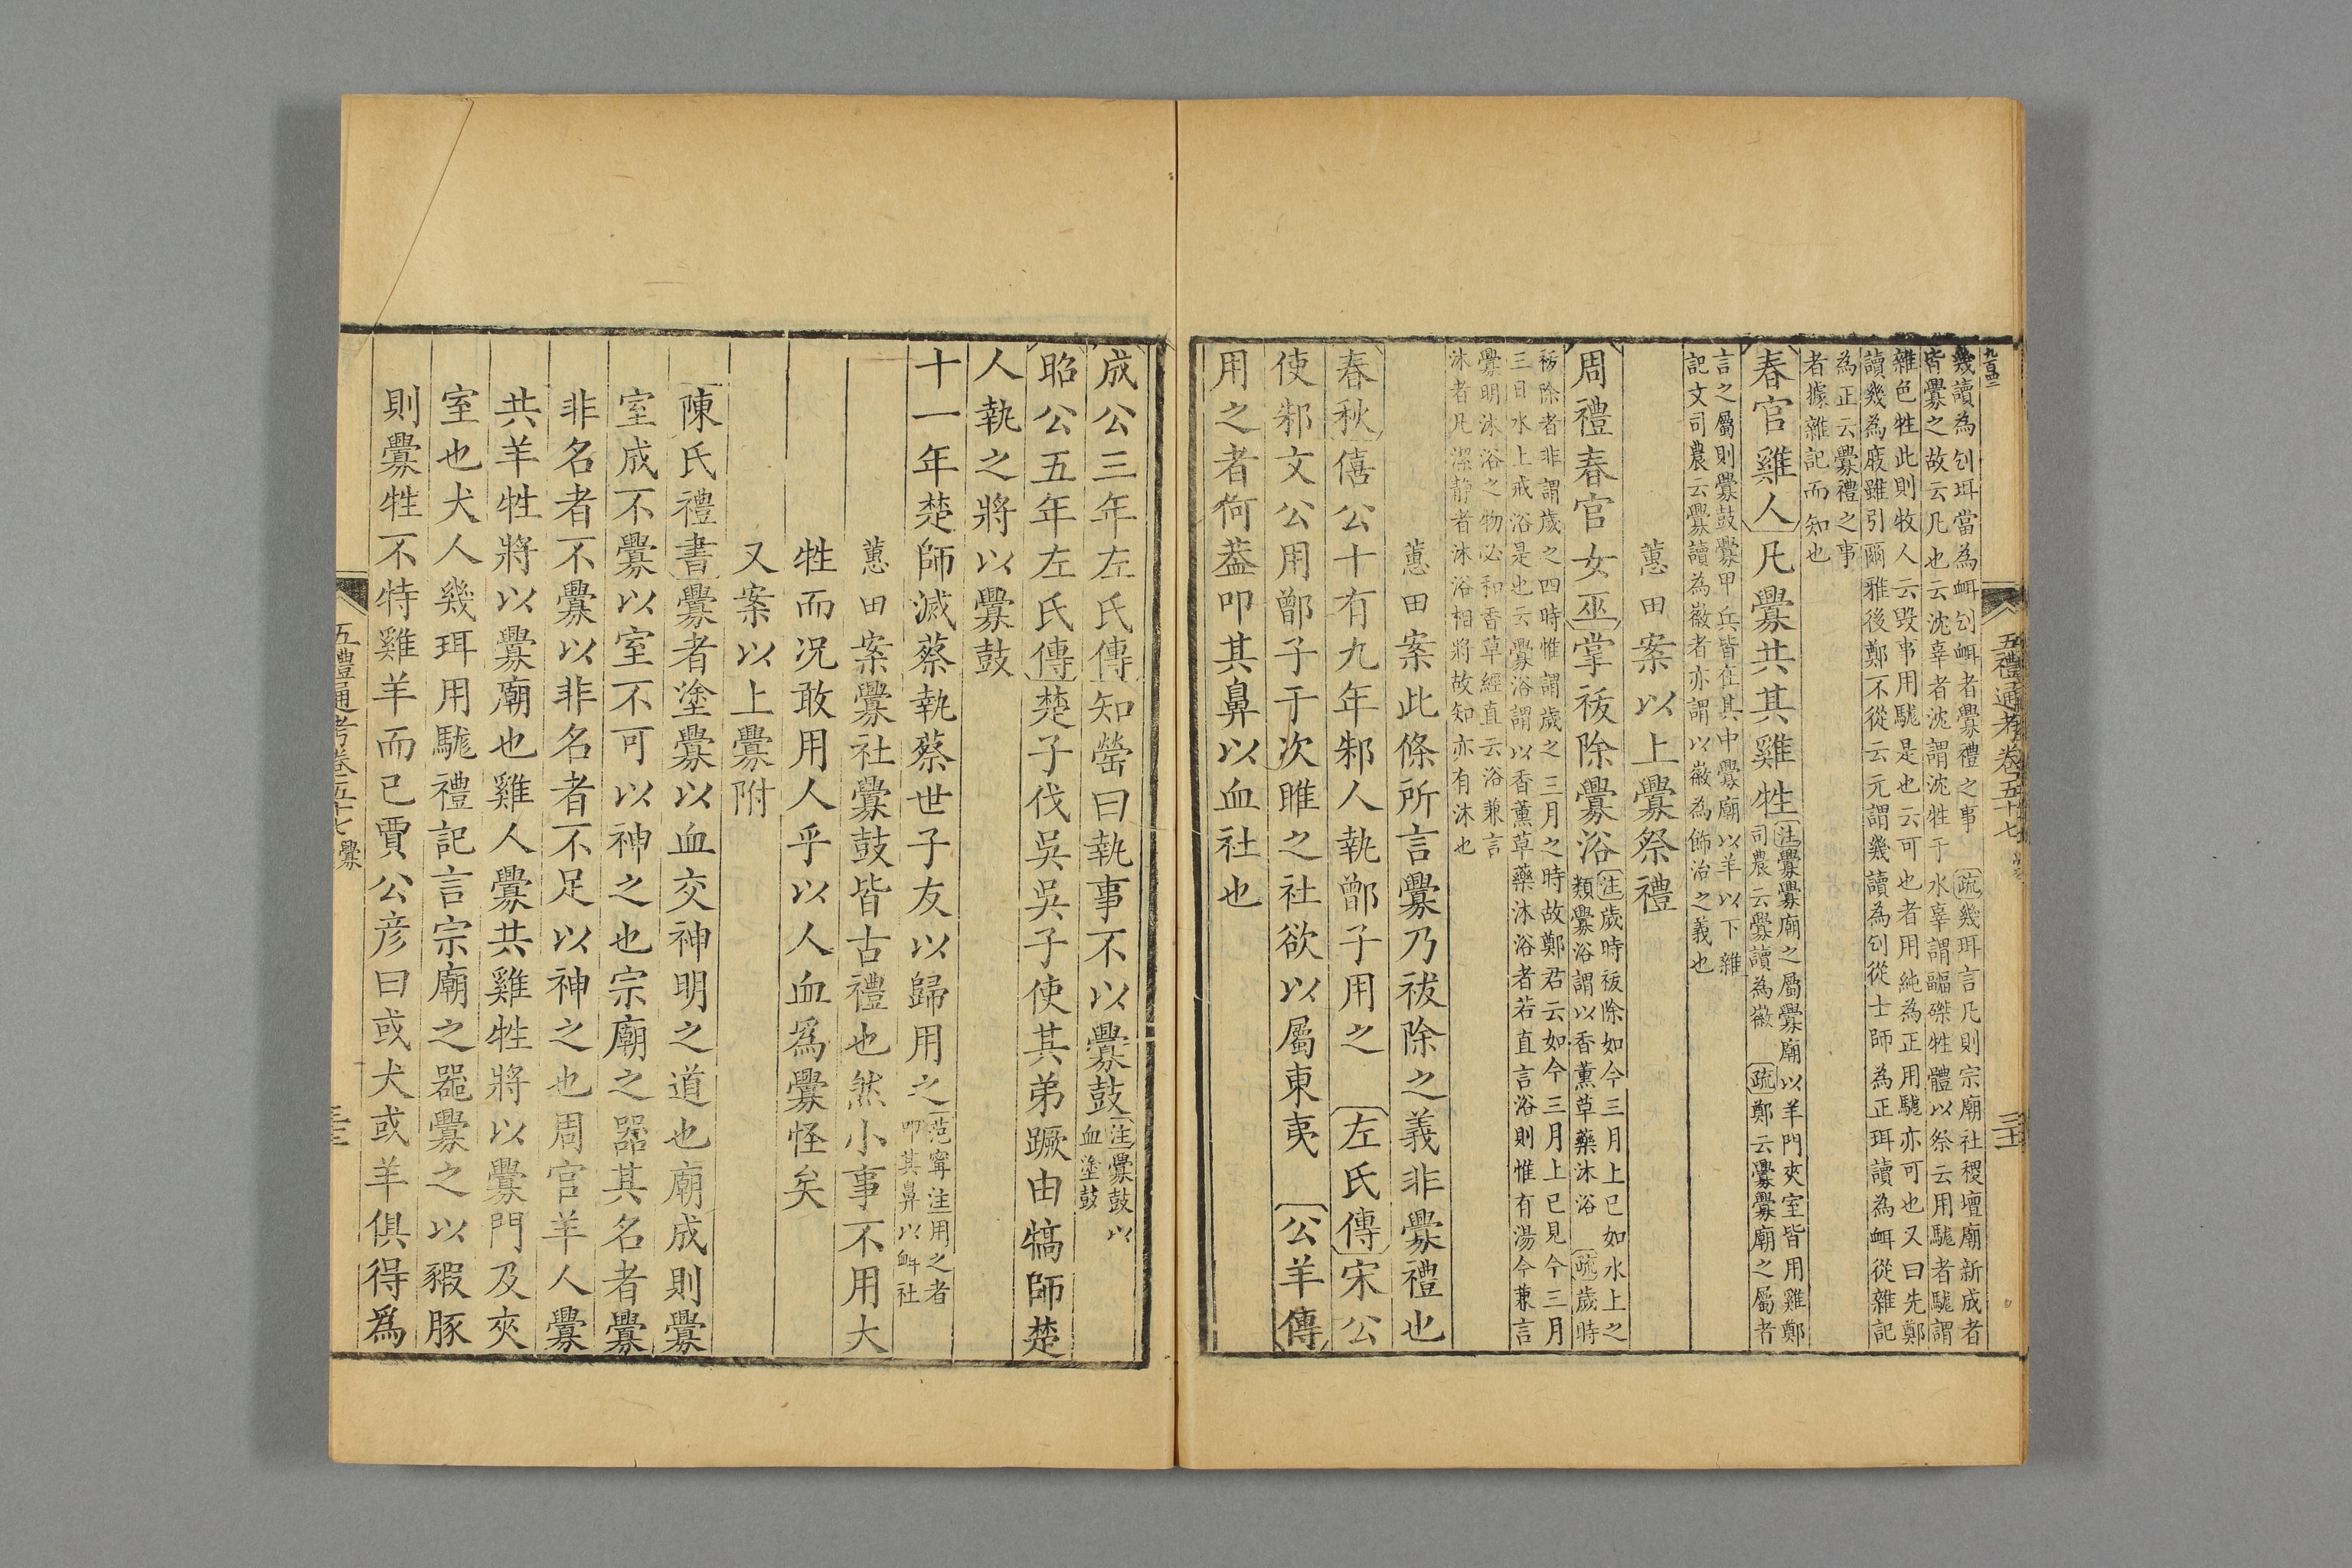 五禮通考卷五十七
幾讀為刉珥當為衈刉衈者釁禮之事疏幾珥言凡則宗廟社稷壇廟新成者
皆釁之故云凡也云沈辜者沈謂沈牲于水辜謂疈磔牲體以祭云用駹者駹謂
雜色牲此則牧人云毀事用駹是也云可也者用純為正用駹亦可也又曰先鄭
讀幾為庪雖引爾雅後鄭不從云元謂幾讀為刉從士師為正珥讀為衈從雜記
為正云釁禮之事
者據雜記而知也
春官雞人凡釁共其雞牲注釁釁廟之屬釁廟以羊門夾室皆用雞鄭
司農云釁讀為徽疏鄭云釁釁廟之屬者
言之屬則釁鼓釁甲兵皆在其中釁廟以羊以下雜
記文司農云釁讀為徽者亦謂以徽為飾治之義也
蕙田案以上釁祭禮
周禮春官女巫掌祓除釁浴注歲時祓除如今三月上巳如水上之
類釁浴謂以香薰草藥沐浴疏歲時
祓除者非謂歲之四時惟謂歲之三月之時故鄭君云如今三月上巳見今三月
三日水上戒浴是也云釁浴謂以香薰草藥沐浴者若直言浴則惟有湯今兼言
釁明沐浴之物必和香草經直云浴兼言
沐者凡潔靜者沐浴相將故知亦有沐也
蕙田案此條所言釁乃祓除之義非釁禮也
春秋僖公十有九年邾人執鄫子用之左氏傳宋公
使邾文公用鄫子于次睢之社欲以屬東夷公羊傳
用之者何葢叩其鼻以血社也
成公三年左氏傳知罃曰執事不以釁鼓注釁鼓以
血塗鼓
昭公五年左氏傳楚子伐吳吳子使其弟蹶由犒師楚
人執之將以釁鼓
十一年楚師滅蔡執蔡世子友以歸用之范甯注用之者
叩其鼻以衈社
蕙田案釁社釁鼓皆古禮也然小事不用大
牲而況敢用人乎以人血爲釁怪矣
又案以上釁附
陳氏禮書釁者塗釁以血交神明之道也廟成則釁
室成不釁以室不可以神之也宗廟之器其名者釁
非名者不釁以非名者不足以神之也周官羊人釁
共羊牲將以釁廟也雞人釁共雞牲將以釁門及夾
室也犬人幾珥用駹禮記言宗廟之器釁之以豭豚
則釁牲不特雞羊而已賈公彦曰或犬或羊俱得爲
五禮通考卷五十七 釁